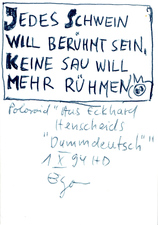 JEDES SCHWEIN
WILL BERÜHMT SEIN,
KEINE SAU WILL
MEHR RÜHMEN
Poloroid "Aus Eckhard
Henscheids
"Dummdeutsch""
1 X 94 HD